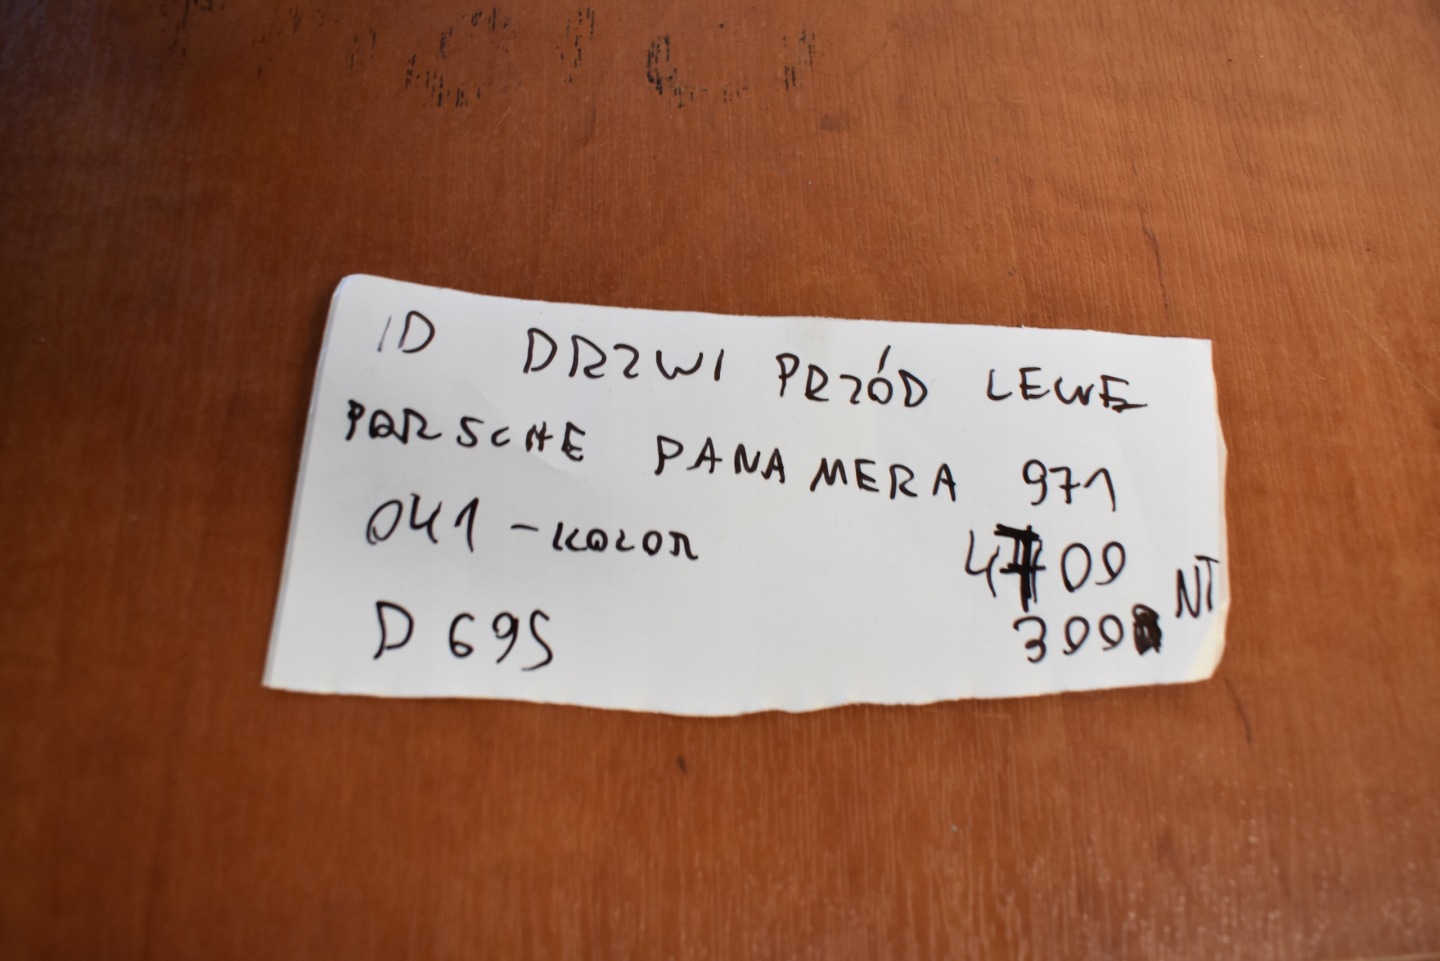 ID DRZWI PRZÓD LEWE
PORSCHE PANAMERA 971
041 - KOLOR 4700
NT
D 695 300